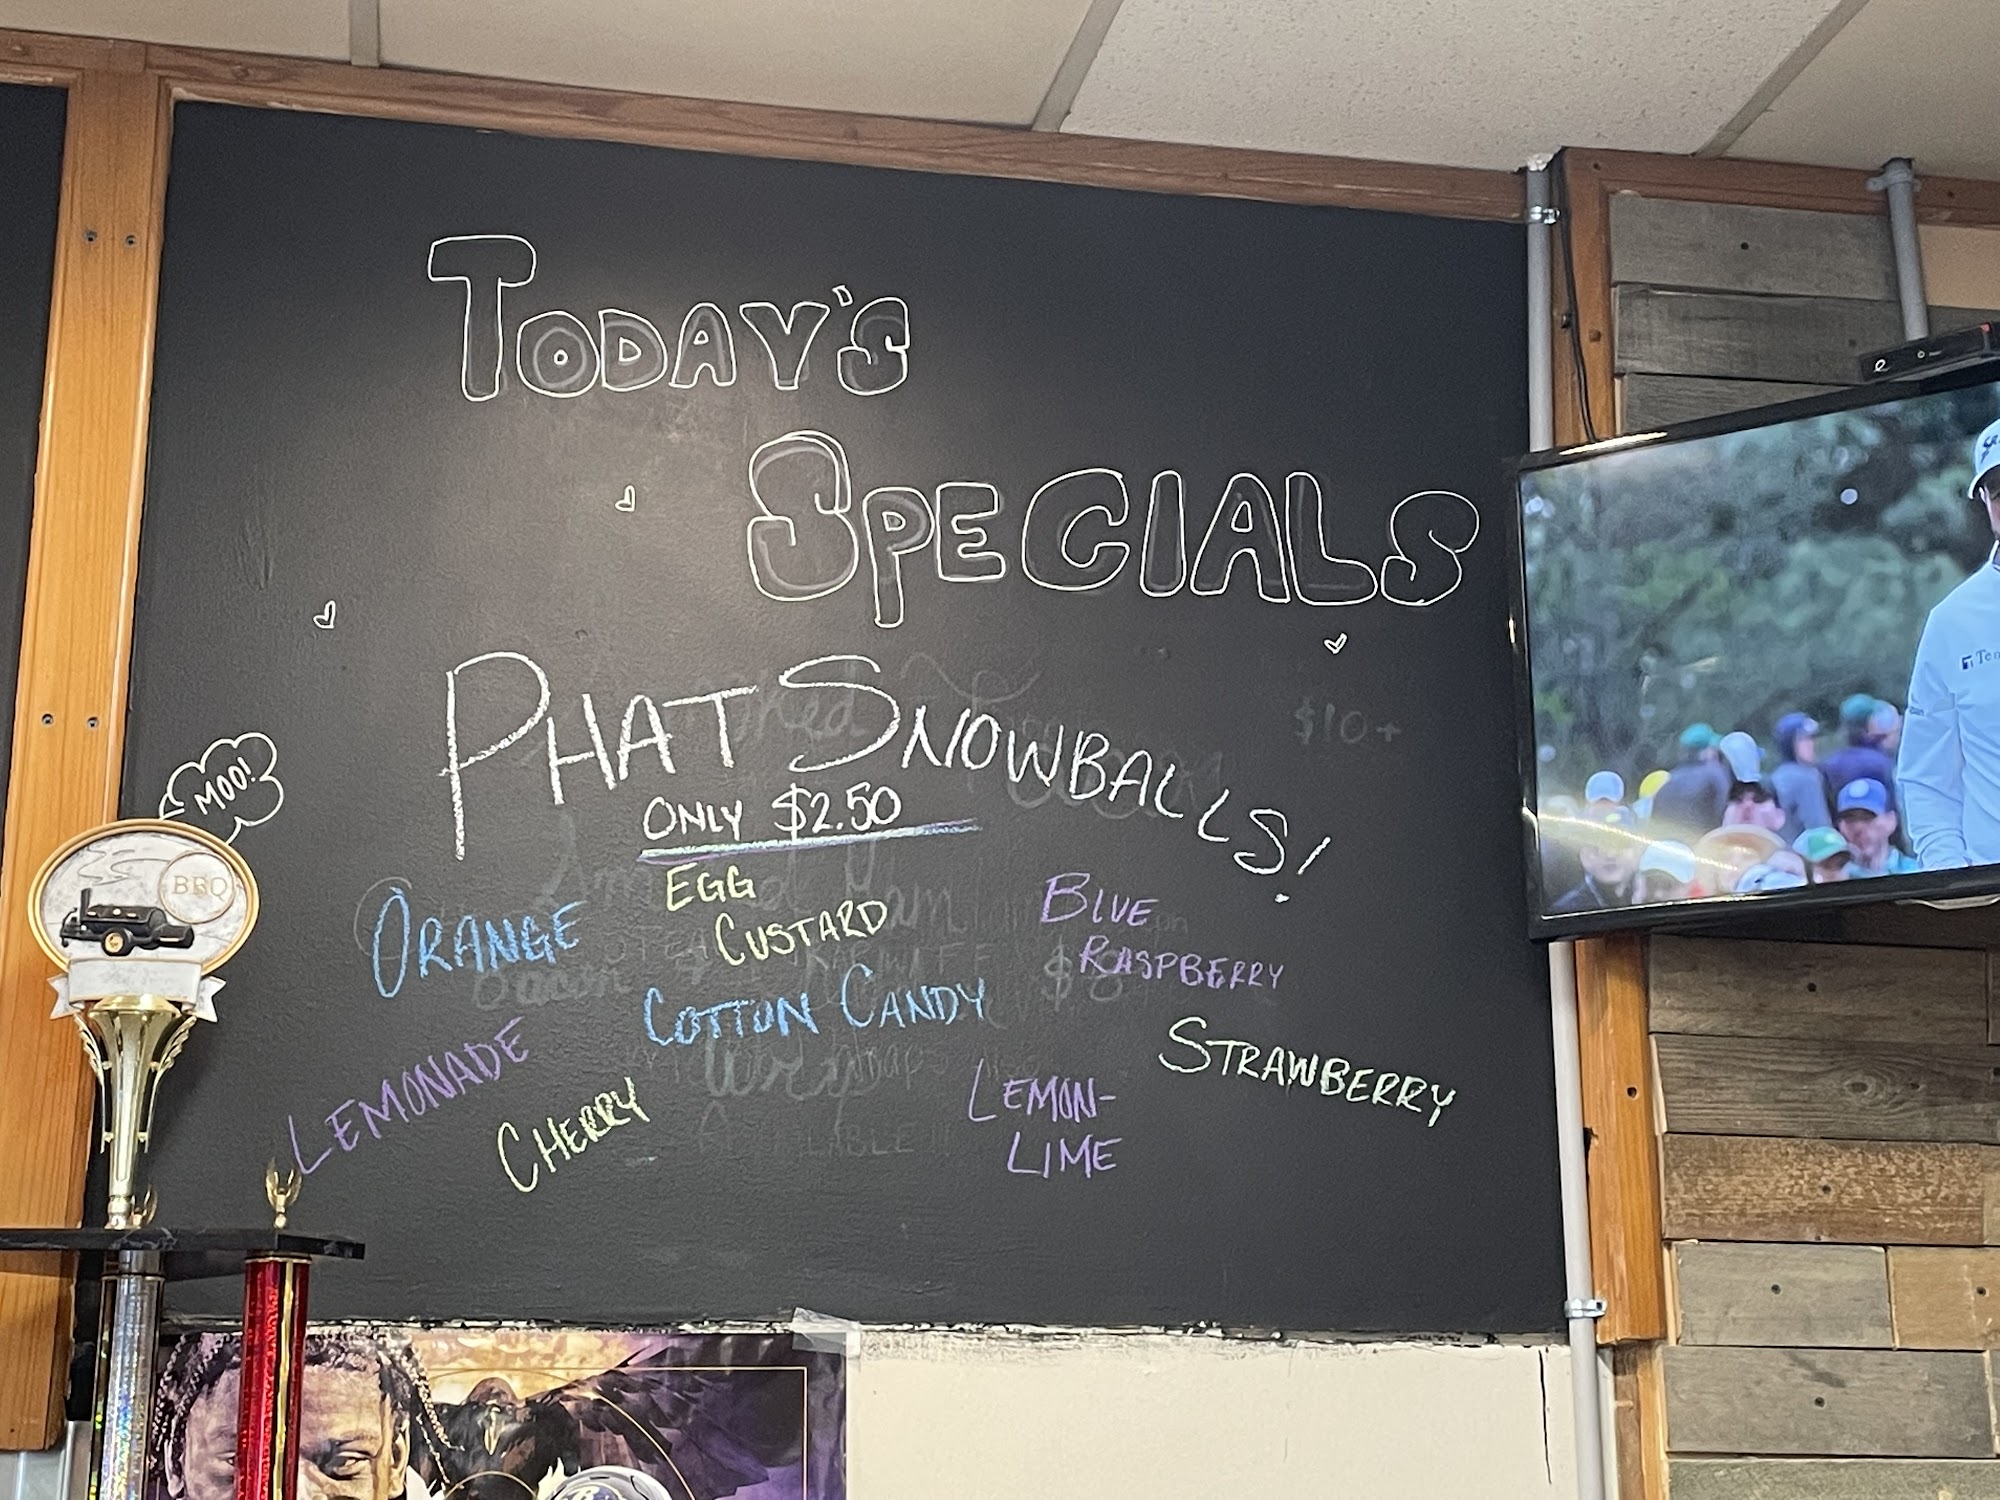 TODAY'S
SPECIALS
PHAT SNOWBALLS!
ONLY $2.50
EGG
CUSTARD
ORANGE
BLUE
RASPBERRY
COTTON CANDY
LEMONADE
CHERRY
LEMON-
LIME
STRAWBERRY
MOO!
BBQ
$10+